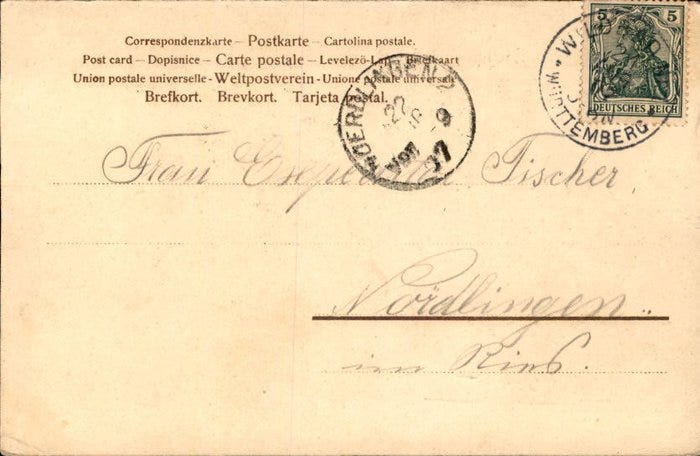 Correspondenzkarte – Postkarte – Cartolina postale.
Post card – Dopisnice – Carte postale – Levelező-Lap – Briefkaart
Union postale universelle – Weltpostverein – Unione postale universale
Brefkort. Brevkort. Tarjeta postal.
5 5
DEUTSCHES REICH
WÜRTTEMBERG
NOERDLINGEN 2
22
9
Frau Tischer
Nördlingen
im Ries.